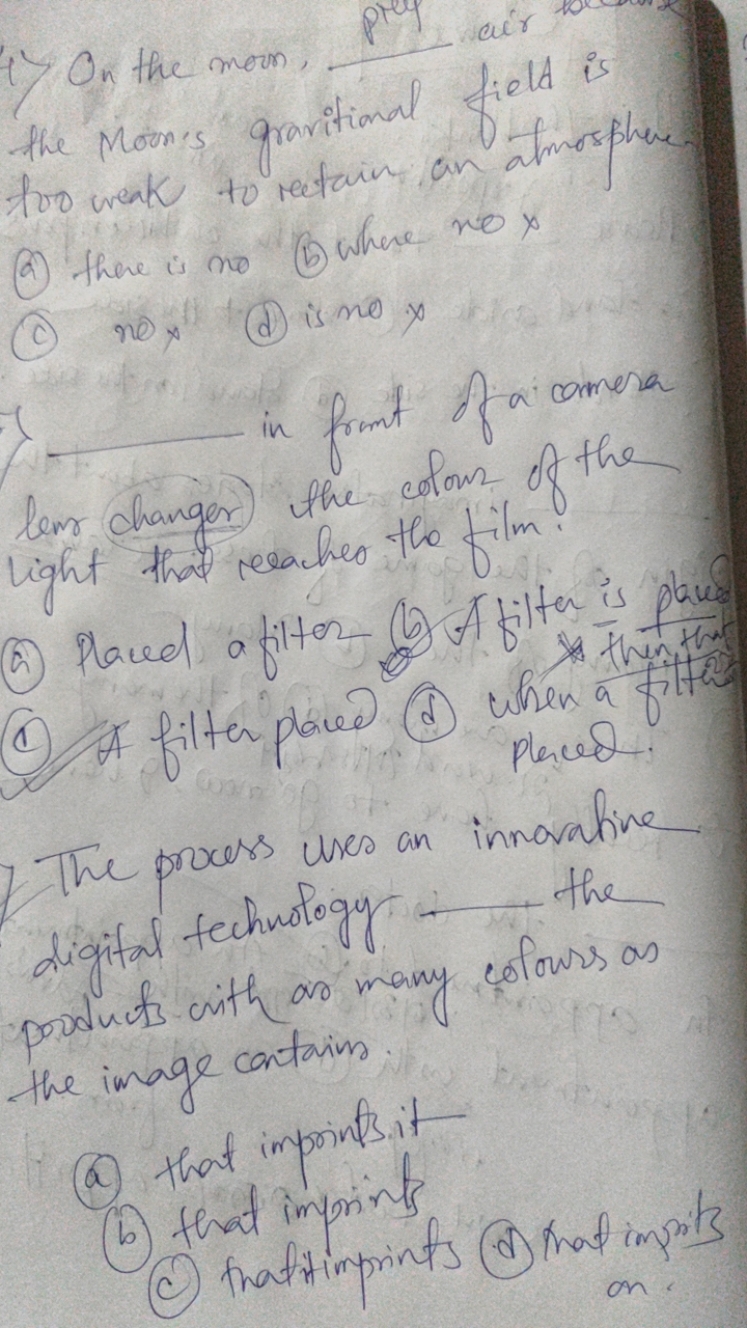 prep
4) On the moon, ______ air because
the Moon's gravitional field is
too weak to reetain an atmosphere
(a) there is no (b) where no x
(c) no x (d) is no x
______ in front of a camera
lens changes the colour of the
light that reeaches the film.
(a) Placed a filter (b) A filter is placed
then, that
(c) A filter placed (d) when a filter
placed.
The process uses an innovative
digital technology ______ the
products with as many colours as
the image contains.
(a) that imprints it
(b) that imprints
(c) that it imprints (d) that imprits
on.